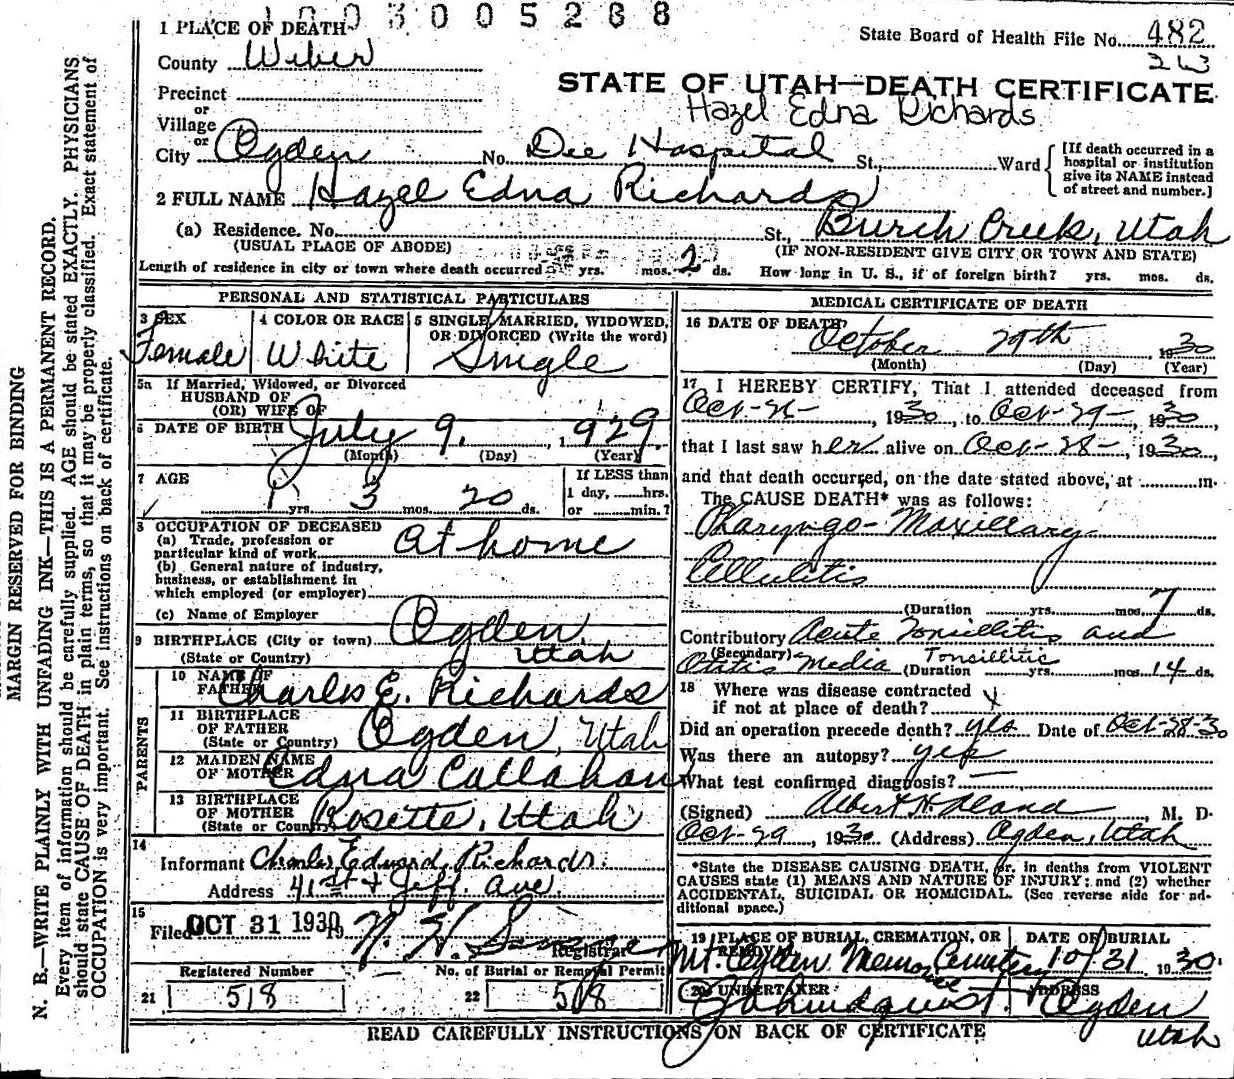 1003005268
1 PLACE OF DEATH
State Board of Health File No. 482
County Weber
STATE OF UTAH—DEATH CERTIFICATE
Precinct
Hazel Edna Richards
or
Village
or
City Ogden No. Dee Hospital St., Ward
[If death occurred in a hospital or institution give its NAME instead of street and number.]
2 FULL NAME Hazel Edna Richards
(a) Residence. No. St., Burch Creek, Utah
(USUAL PLACE OF ABODE) (IF NON-RESIDENT GIVE CITY OR TOWN AND STATE)
Length of residence in city or town where death occurred yrs. mos. 2 ds. How long in U. S., if of foreign birth? yrs. mos. ds.
PERSONAL AND STATISTICAL PARTICULARS
3 SEX
Female
4 COLOR OR RACE
White
5 SINGLE, MARRIED, WIDOWED, OR DIVORCED (Write the word)
Single
5a If Married, Widowed, or Divorced
HUSBAND OF
(OR) WIFE OF
6 DATE OF BIRTH July 9, 1929
(Month) (Day) (Year)
7 AGE
1 yrs. 3 mos. 20 ds.
If LESS than
1 day, hrs.
or min.?
8 OCCUPATION OF DECEASED
(a) Trade, profession or
particular kind of work At home
(b) General nature of industry,
business, or establishment in
which employed (or employer)
(c) Name of Employer
9 BIRTHPLACE (City or town) Ogden,
(State or Country) Utah
PARENTS
10 NAME OF FATHER Charles E. Richards
11 BIRTHPLACE OF FATHER (State or Country) Ogden, Utah
12 MAIDEN NAME OF MOTHER Edna Callahan
13 BIRTHPLACE OF MOTHER (State or Country) Rosette, Utah
14
Informant Charles Edward Richards.
Address 41st & Jeff. Ave.
15
Filed OCT 31 1930, 19 Registrar
Registered Number No. of Burial or Removal Permit
21 518 22 518
MEDICAL CERTIFICATE OF DEATH
16 DATE OF DEATH
October 29th, 1930
(Month) (Day) (Year)
17 I HEREBY CERTIFY, That I attended deceased from
Oct-26-, 1930, to Oct-29-, 1930,
that I last saw her alive on Oct-28-, 1930,
and that death occurred, on the date stated above, at m.
The CAUSE DEATH* was as follows:
Pharyngo-Maxillary
Cellulitis
(Duration yrs. mos. 7 ds.
Contributory Acute Tonsillitis and
(Secondary)
Otitis Media Tonsillitis (Duration yrs. mos. 14 ds.
18 Where was disease contracted
if not at place of death?
Did an operation precede death? yes Date of Oct-28-30
Was there an autopsy? yes
What test confirmed diagnosis? —
(Signed) M. D.
Oct-29, 1930 (Address) Ogden, Utah
*State the DISEASE CAUSING DEATH, or, in deaths from VIOLENT
CAUSES state (1) MEANS AND NATURE OF INJURY; and (2) whether
ACCIDENTAL, SUICIDAL OR HOMICIDAL. (See reverse side for additional space.)
19 PLACE OF BURIAL, CREMATION, OR
Mt. Ogden Memorial Cemetery
DATE OF BURIAL
10/31 1930.
20 UNDERTAKER
Lindquist
ADDRESS
Ogden
Utah
READ CAREFULLY INSTRUCTIONS ON BACK OF CERTIFICATE
MARGIN RESERVED FOR BINDING
N. B.—WRITE PLAINLY WITH UNFADING INK—THIS IS A PERMANENT RECORD.
Every item of information should be carefully supplied. AGE should be stated EXACTLY. PHYSICIANS
should state CAUSE OF DEATH in plain terms, so that it may be properly classified. Exact statement of
OCCUPATION is very important. See instructions on back of certificate.